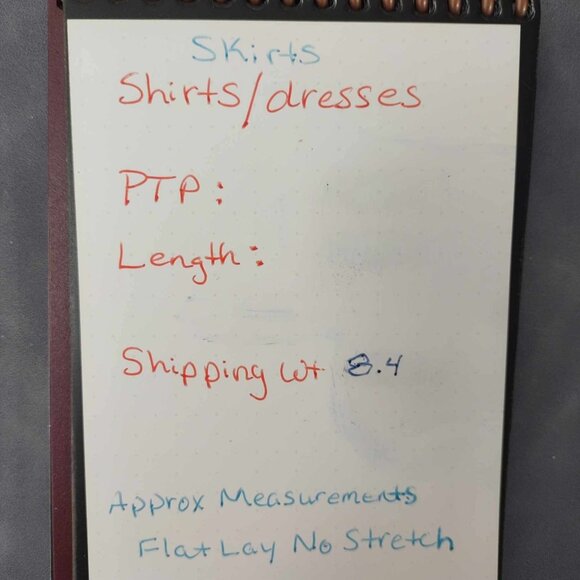 Skirts
Shirts/dresses
PTP:
Length:
Shipping wt 8.4
Approx Measurements
Flat Lay No Stretch